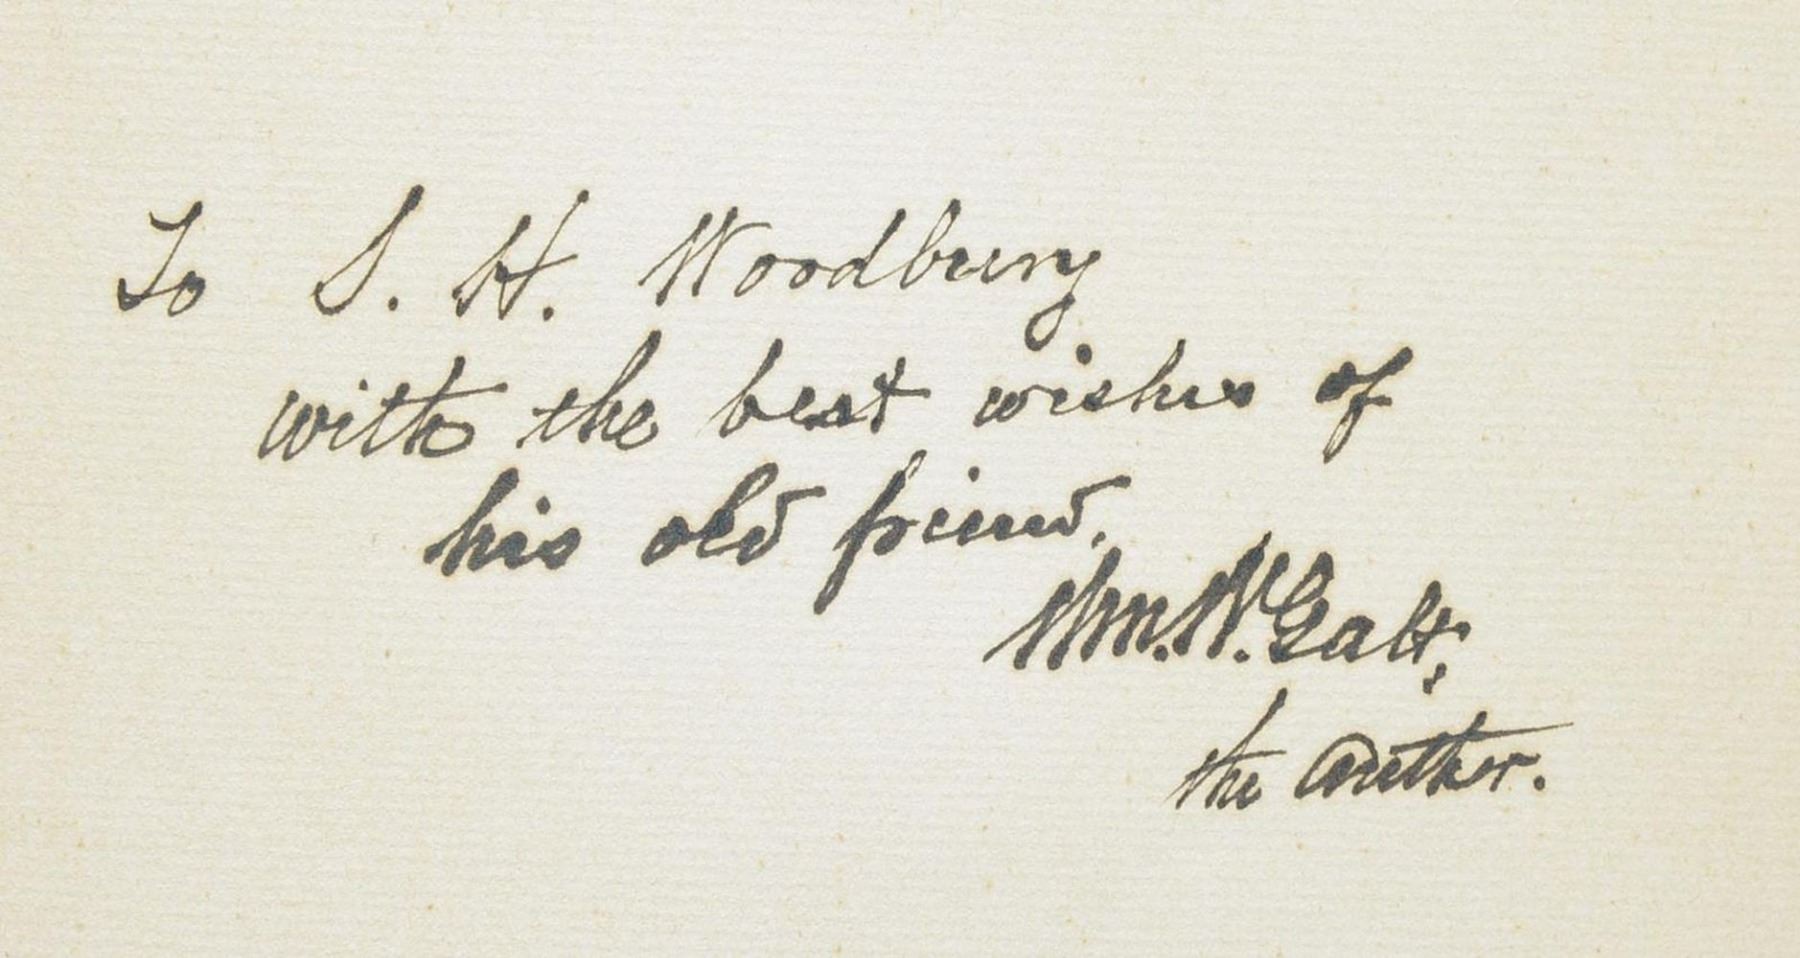 To S. H. Woodbury
with the best wishes of
his old friend.
Wm. W. Galt,
the author.